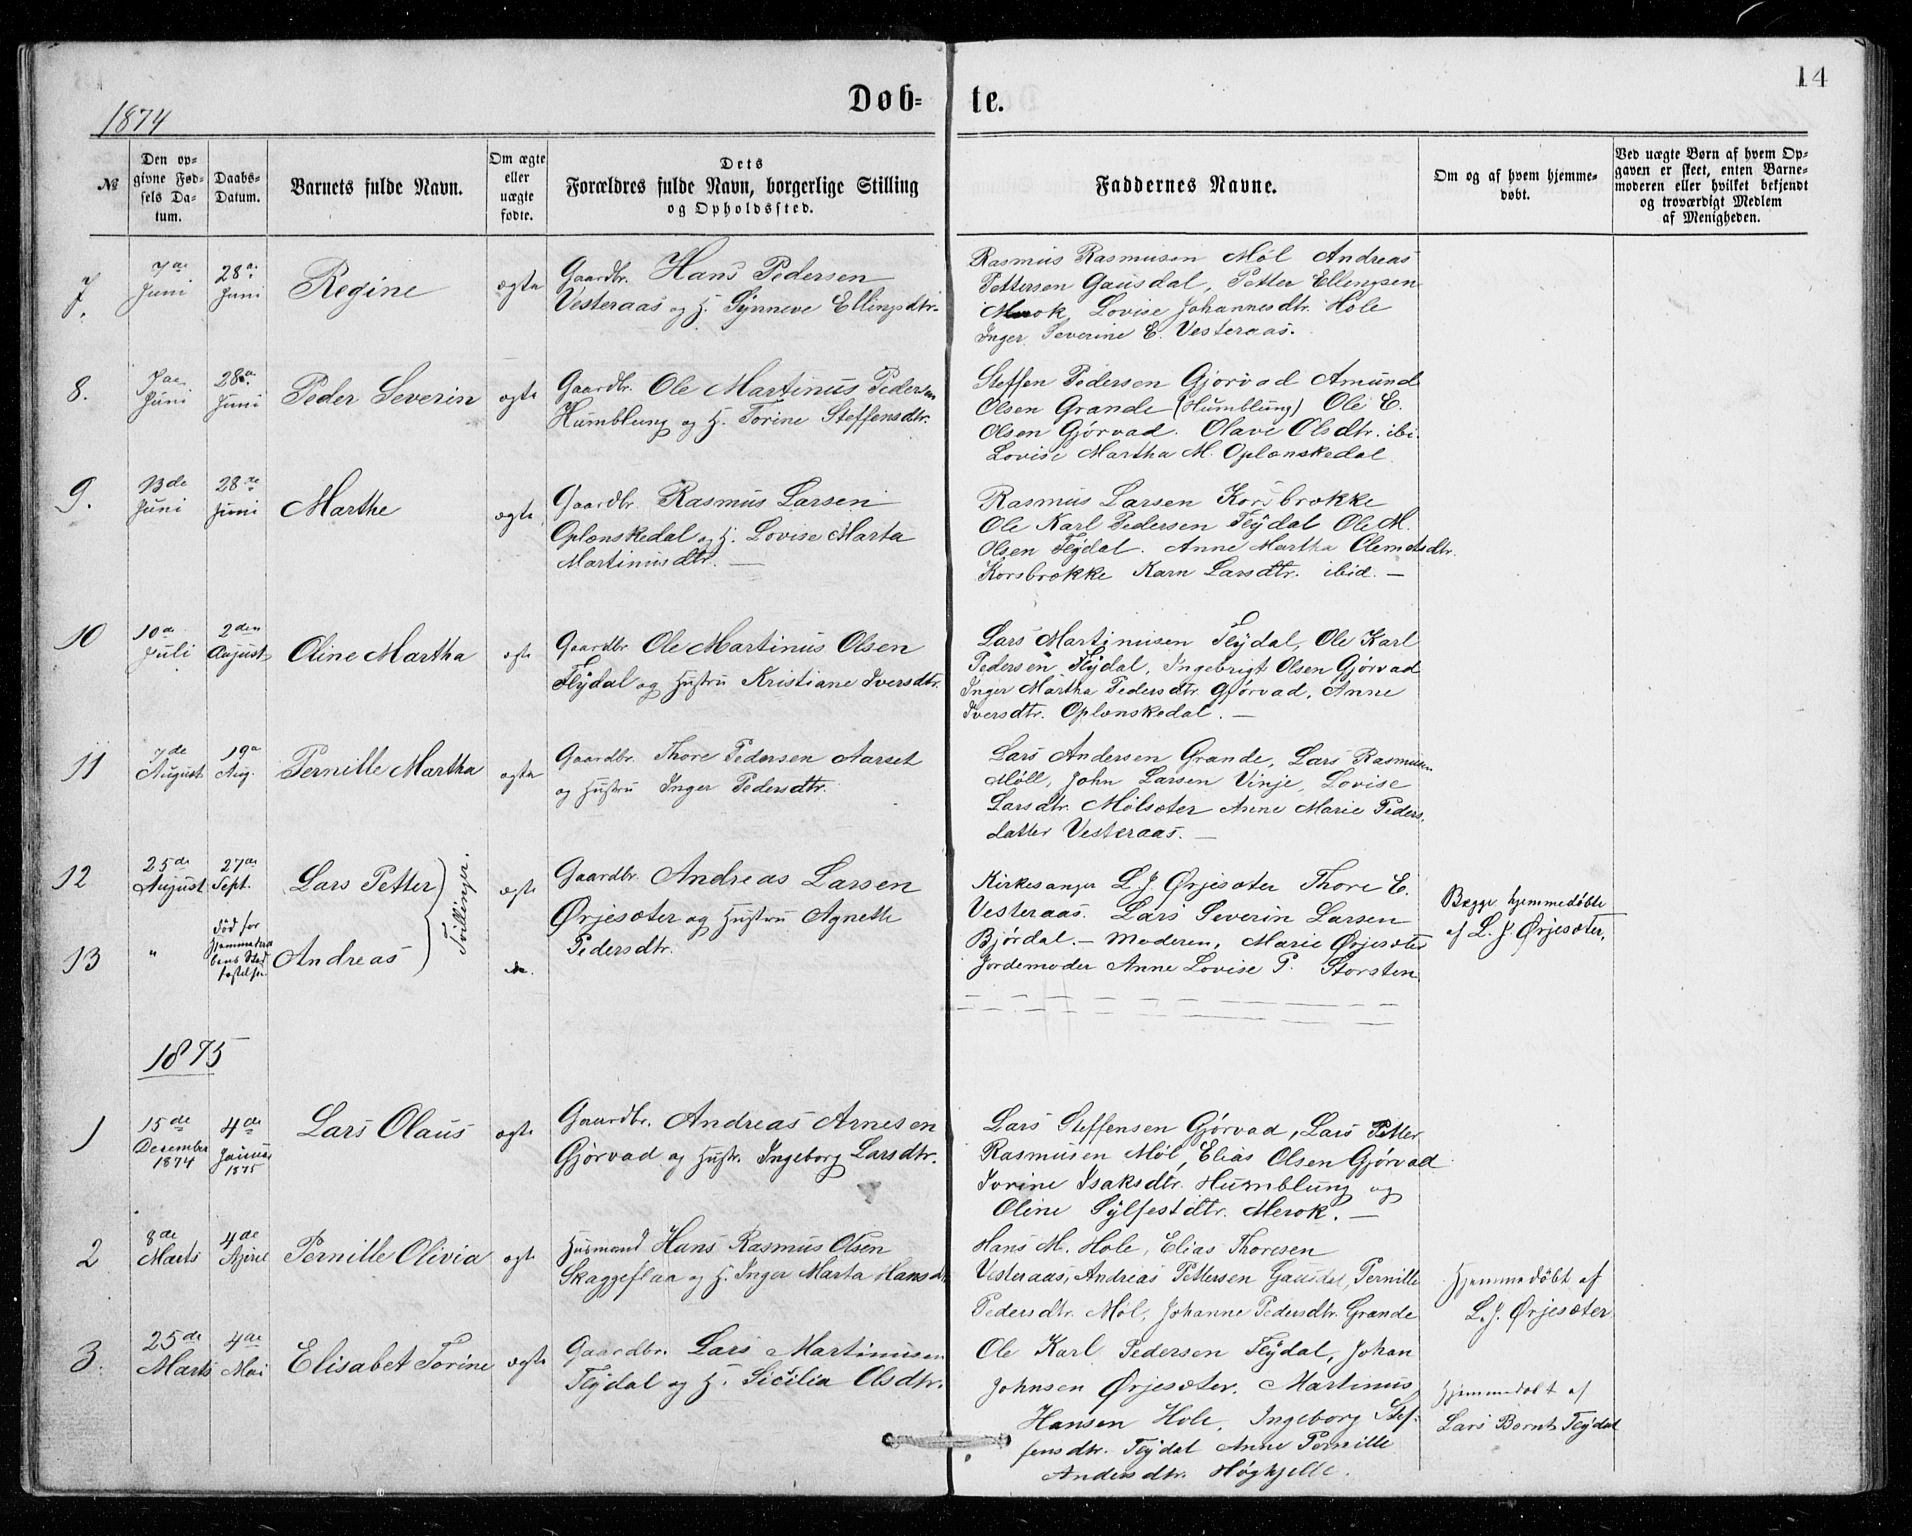 14
Døb- te.
1874
№
Den op-
givne Fød-
sels Da-
tum.
Daabs-
Datum.
Barnets fulde Navn.
Om ægte
eller
uægte
fødte.
Dets
Forældres fulde Navn, borgerlige Stilling
og Opholdssted.
Faddernes Navne.
Om og af hvem hjemme-
døbt.
Ved uægte Børn af hvem Op-
gaven er skeet, enten Barne-
moderen eller hvilket bekjendt
og troværdigt Medlem
af Menigheden.
7.
7de
Juni
28de
Juni
Regine
ægte
Gaardbr. Hans Pedersen
Vesteraas og H. Synneve Ellingsdtr.
Rasmus Rasmusen Møl Andreas
Pettersen Gausdal, Petter Ellingsen
Merok, Lovise Johannesdtr. Hole
Inger Severine E. Vesteraas.
8.
7de
Juni
28de
Juni
Peder Severin
ægte
Gaardbr. Ole Martinus Pedersen
Humblung og H. Torine Steffensdtr.
Steffen Pedersen Gjørvad Amund
Olsen Grande (Humblung) Ole E.
Olsen Gjørvad. Olave Olsdtr. ibi.
Lovise Martha M. Oplænskedal
9.
13de
Juni
28de
Juni
Marthe
ægte
Gaardbr. Rasmus Larsen
Oplænskedal og H. Lovise Marta
Martinusdtr. —
Rasmus Larsen Korsbrække
Ole Karl Pedersen Flydal Ole M.
Olsen Flydal. Anne Martha Clemetsdtr.
Korsbrække Karn Larsdtr. ibid. —
10
10de
Juli
2den
August
Oline Martha
ægte
Gaardbr Ole Martinus Olsen
Flydal og Hustru Kristiane Iversdtr.
Lars Martinusen Flydal, Ole Karl
Pedersen Flydal, Ingebrigt Olsen Gjørvad
Inger Martha Pedersdtr. Gjørvad, Anne
Iversdtr. Oplænskedal. —
11
7de
August
19de
Aug.
Pernille Martha
ægte
Gaardbr. Thore Pedersen Aarset
og Hustru Inger Pedersdtr.
Lars Andersen Grande, Lars Rasmusen
Møll, John Larsen Vinje, Lovise
Larsdtr. Mølsæter Anne Marie Peders-
datter Vesteraas. —
12
25de
August
27de
Sept.
Lars Petter
Tvillinger.
ægte
Gaardbr. Andreas Larsen
Ørjesæter og Hustru Agnette
Pedersdtr.
Kirkesanger L. J. Ørjesæter Thore E.
Vesteraas. Lars Severin Larsen
Bjørdal. — Moderen, Marie Ørjesæter
Jordemoder Anne Lovise P. Storsten
Begge hjemmedøbte
af L. J. Ørjesæter.
13
"
død før
Hjemmedaa
bens Stad
fæstelse
Andreas
do.
1875
1
15de
Desember
1874
4de
Januar
1875
Lars Olaus
ægte
Gaardbr. Andreas Arnesen
Gjørvad og Hustr. Ingeborg Larsdtr.
Lars Steffensen Gjørvad, Lars Petter
Rasmusen Møl, Elias Olsen Gjørvad
Jorine Isaksdtr. Humblung og
Oline Sylfestdtr. Merok. —
2
8de
Marts
4de
April
Pernille Olivia
ægte
Husmand Hans Rasmus Olsen
Skaggeflaa og H. Inger Marta Hansdt
Hans M. Hole, Elias Thoresen
Vesteraas, Andreas Pettersen Gausdal, Pernille
Pedersdtr. Møl, Johanne Pedersdtr. Grande
Hjemmedøbt af
L. J. Ørjesæter
3.
25de
Marts
4de
Mai
Elisabet Torine
ægte
Gaardbr. Lars Martinusen
Flydal og H. Sicilia Olsdtr.
Ole Karl Pedersen Flydal, Johan
Johnsen Ørjesæter. Martinus
Hansen Hole, Ingeborg Stef-
fensdtr. Flydal Anne Pernille
Andersdtr. Høghjelle.
Hjemmedøbt af
Lars Bernt Flydal